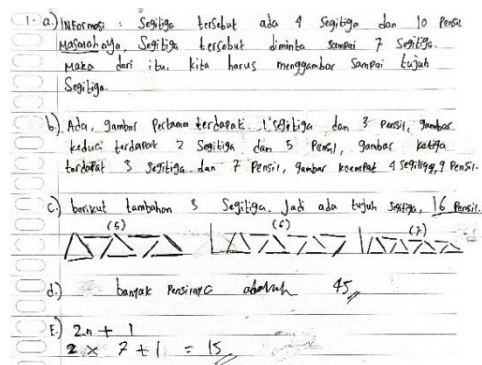 1. a.) Informasi : Segitiga tersebut ada 4 Segitiga dan 10 Pensil
Masalahnya, Segitiga tersebut diminta sampai 7 Segitiga.
Maka dari itu, kita harus menggambar sampai tujuh
Segitiga.
b.) Ada, gambar Pertama terdapat 1 segitiga dan 3 pensil, gambar
kedua terdapat 2 Segitiga dan 5 Pensil, gambar ketiga
terdapat 3 Segitiga dan 7 Pensil, gambar keempat 4 segitiga, 9 Pensil.
C.) berikut tambahan 3 Segitiga. Jadi ada tujuh Segitiga, 16 Pensil.
(5) (6) (7)
d.) banyak Pensilnya adalah 45
E.) 2n + 1
2 x 7 + 1 = 15